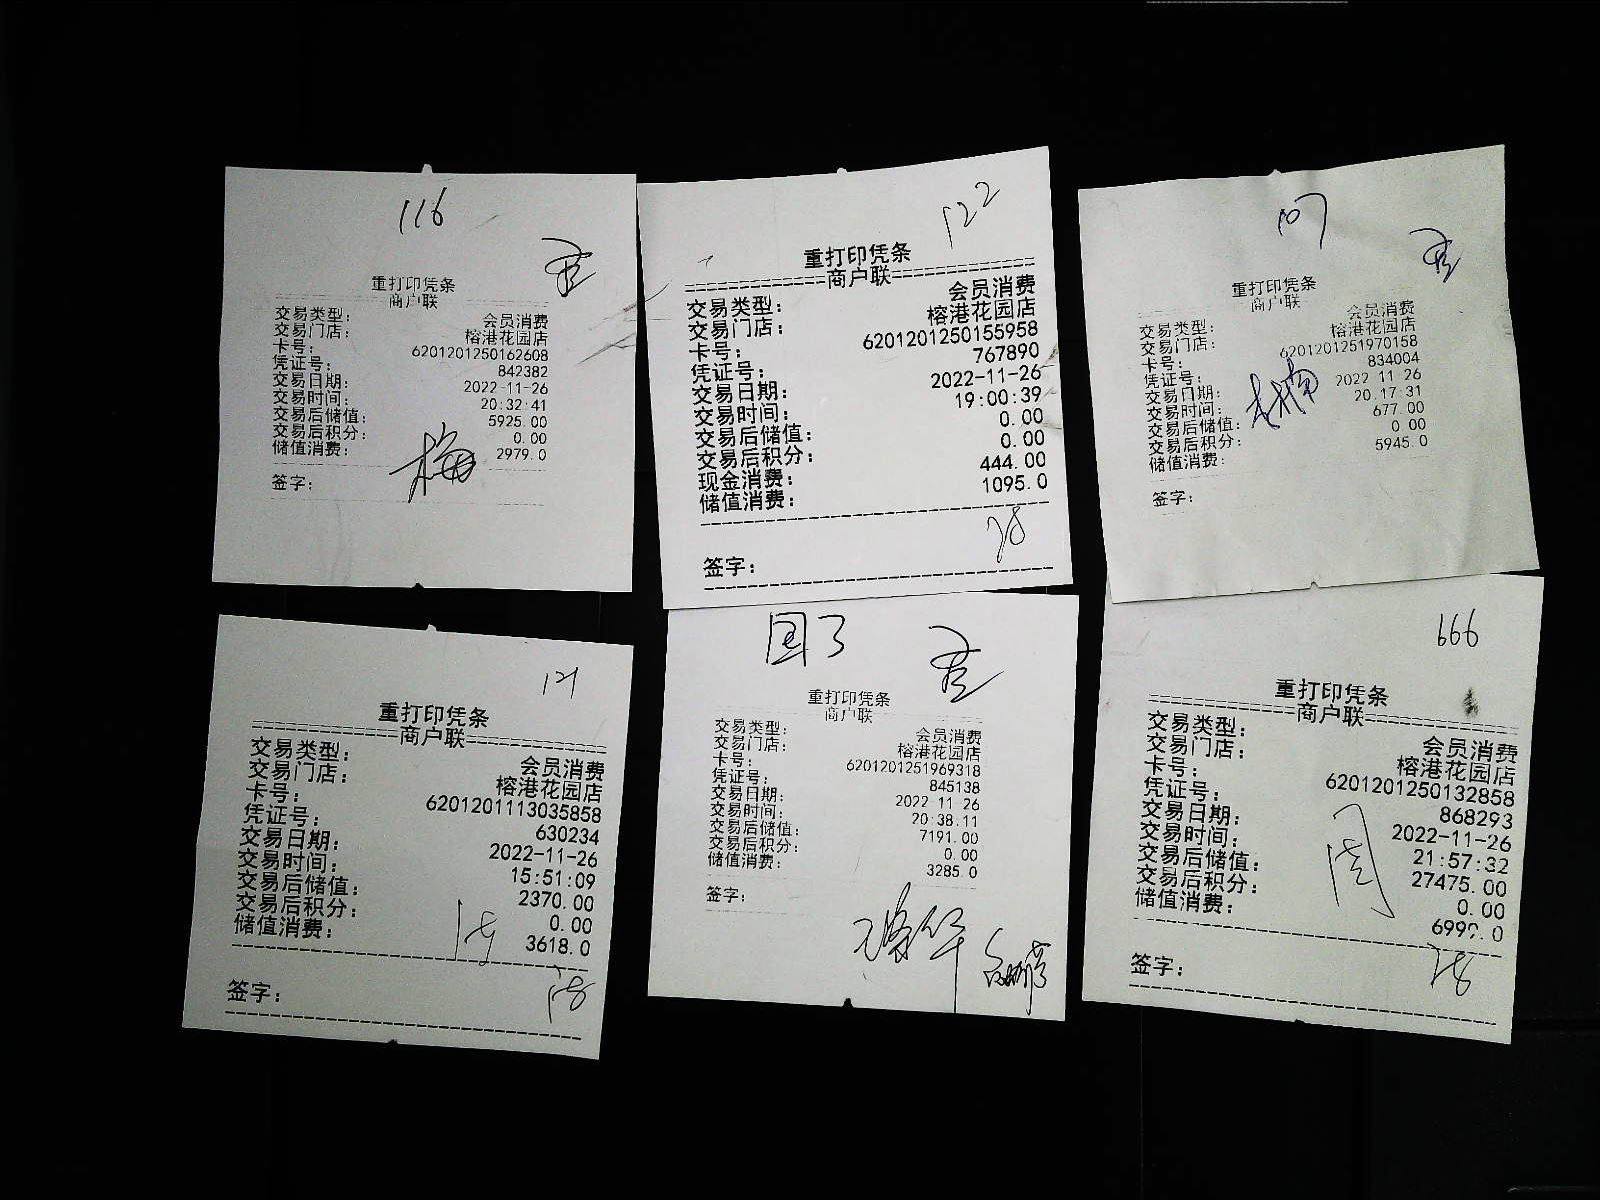 116
重打印凭条
商户联
交易类型: 会员消费
交易门店: 榕港花园店
卡号: 6201201250162608
凭证号: 842382
交易日期: 2022-11-26
交易时间: 20:32:41
交易后储值: 5925.00
交易后积分: 0.00
储值消费: 2979.0
梅
签字:
122
重打印凭条
商户联
交易类型: 会员消费
交易门店: 榕港花园店
卡号: 6201201250155958
凭证号: 767890
交易日期: 2022-11-26
交易时间: 19:00:39
交易后储值: 0.00
交易后积分: 0.00
现金消费: 444.00
储值消费: 1095.0
签字:
107
重打印凭条
商户联
交易类型: 会员消费
交易门店: 榕港花园店
卡号: 6201201251970158
凭证号: 834004
交易日期: 2022 11 26
交易时间: 20.17:31
交易后储值: 677.00
交易后积分: 0 00
储值消费: 5945.0
签字:
121
重打印凭条
商户联
交易类型: 会员消费
交易门店: 榕港花园店
卡号: 6201201113035858
凭证号: 630234
交易日期: 2022-11-26
交易时间: 15:51:09
交易后储值: 2370.00
交易后积分: 0.00
储值消费: 3618.0
签字:
国3
重打印凭条
商户联
交易类型: 会员消费
交易门店: 榕港花园店
卡号: 6201201251969318
凭证号: 845138
交易日期: 2022 11 26
交易时间: 20:38.11
交易后储值: 7191.00
交易后积分: 0.00
储值消费: 3285.0
签字:
666
重打印凭条
商户联
交易类型: 会员消费
交易门店: 榕港花园店
卡号: 6201201250132858
凭证号: 868293
交易日期: 2022-11-26
交易时间: 21:57:32
交易后储值: 27475.00
交易后积分: 0.00
储值消费: 6999.0
签字: